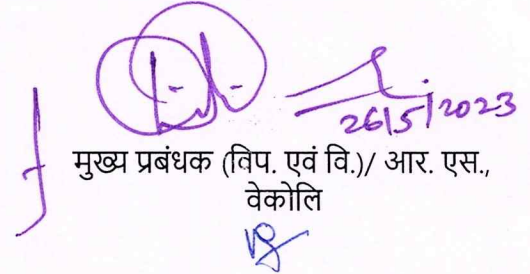 26/5/2023
मुख्य प्रबंधक (विप. एवं वि.)/ आर. एस.,
वेकोलि